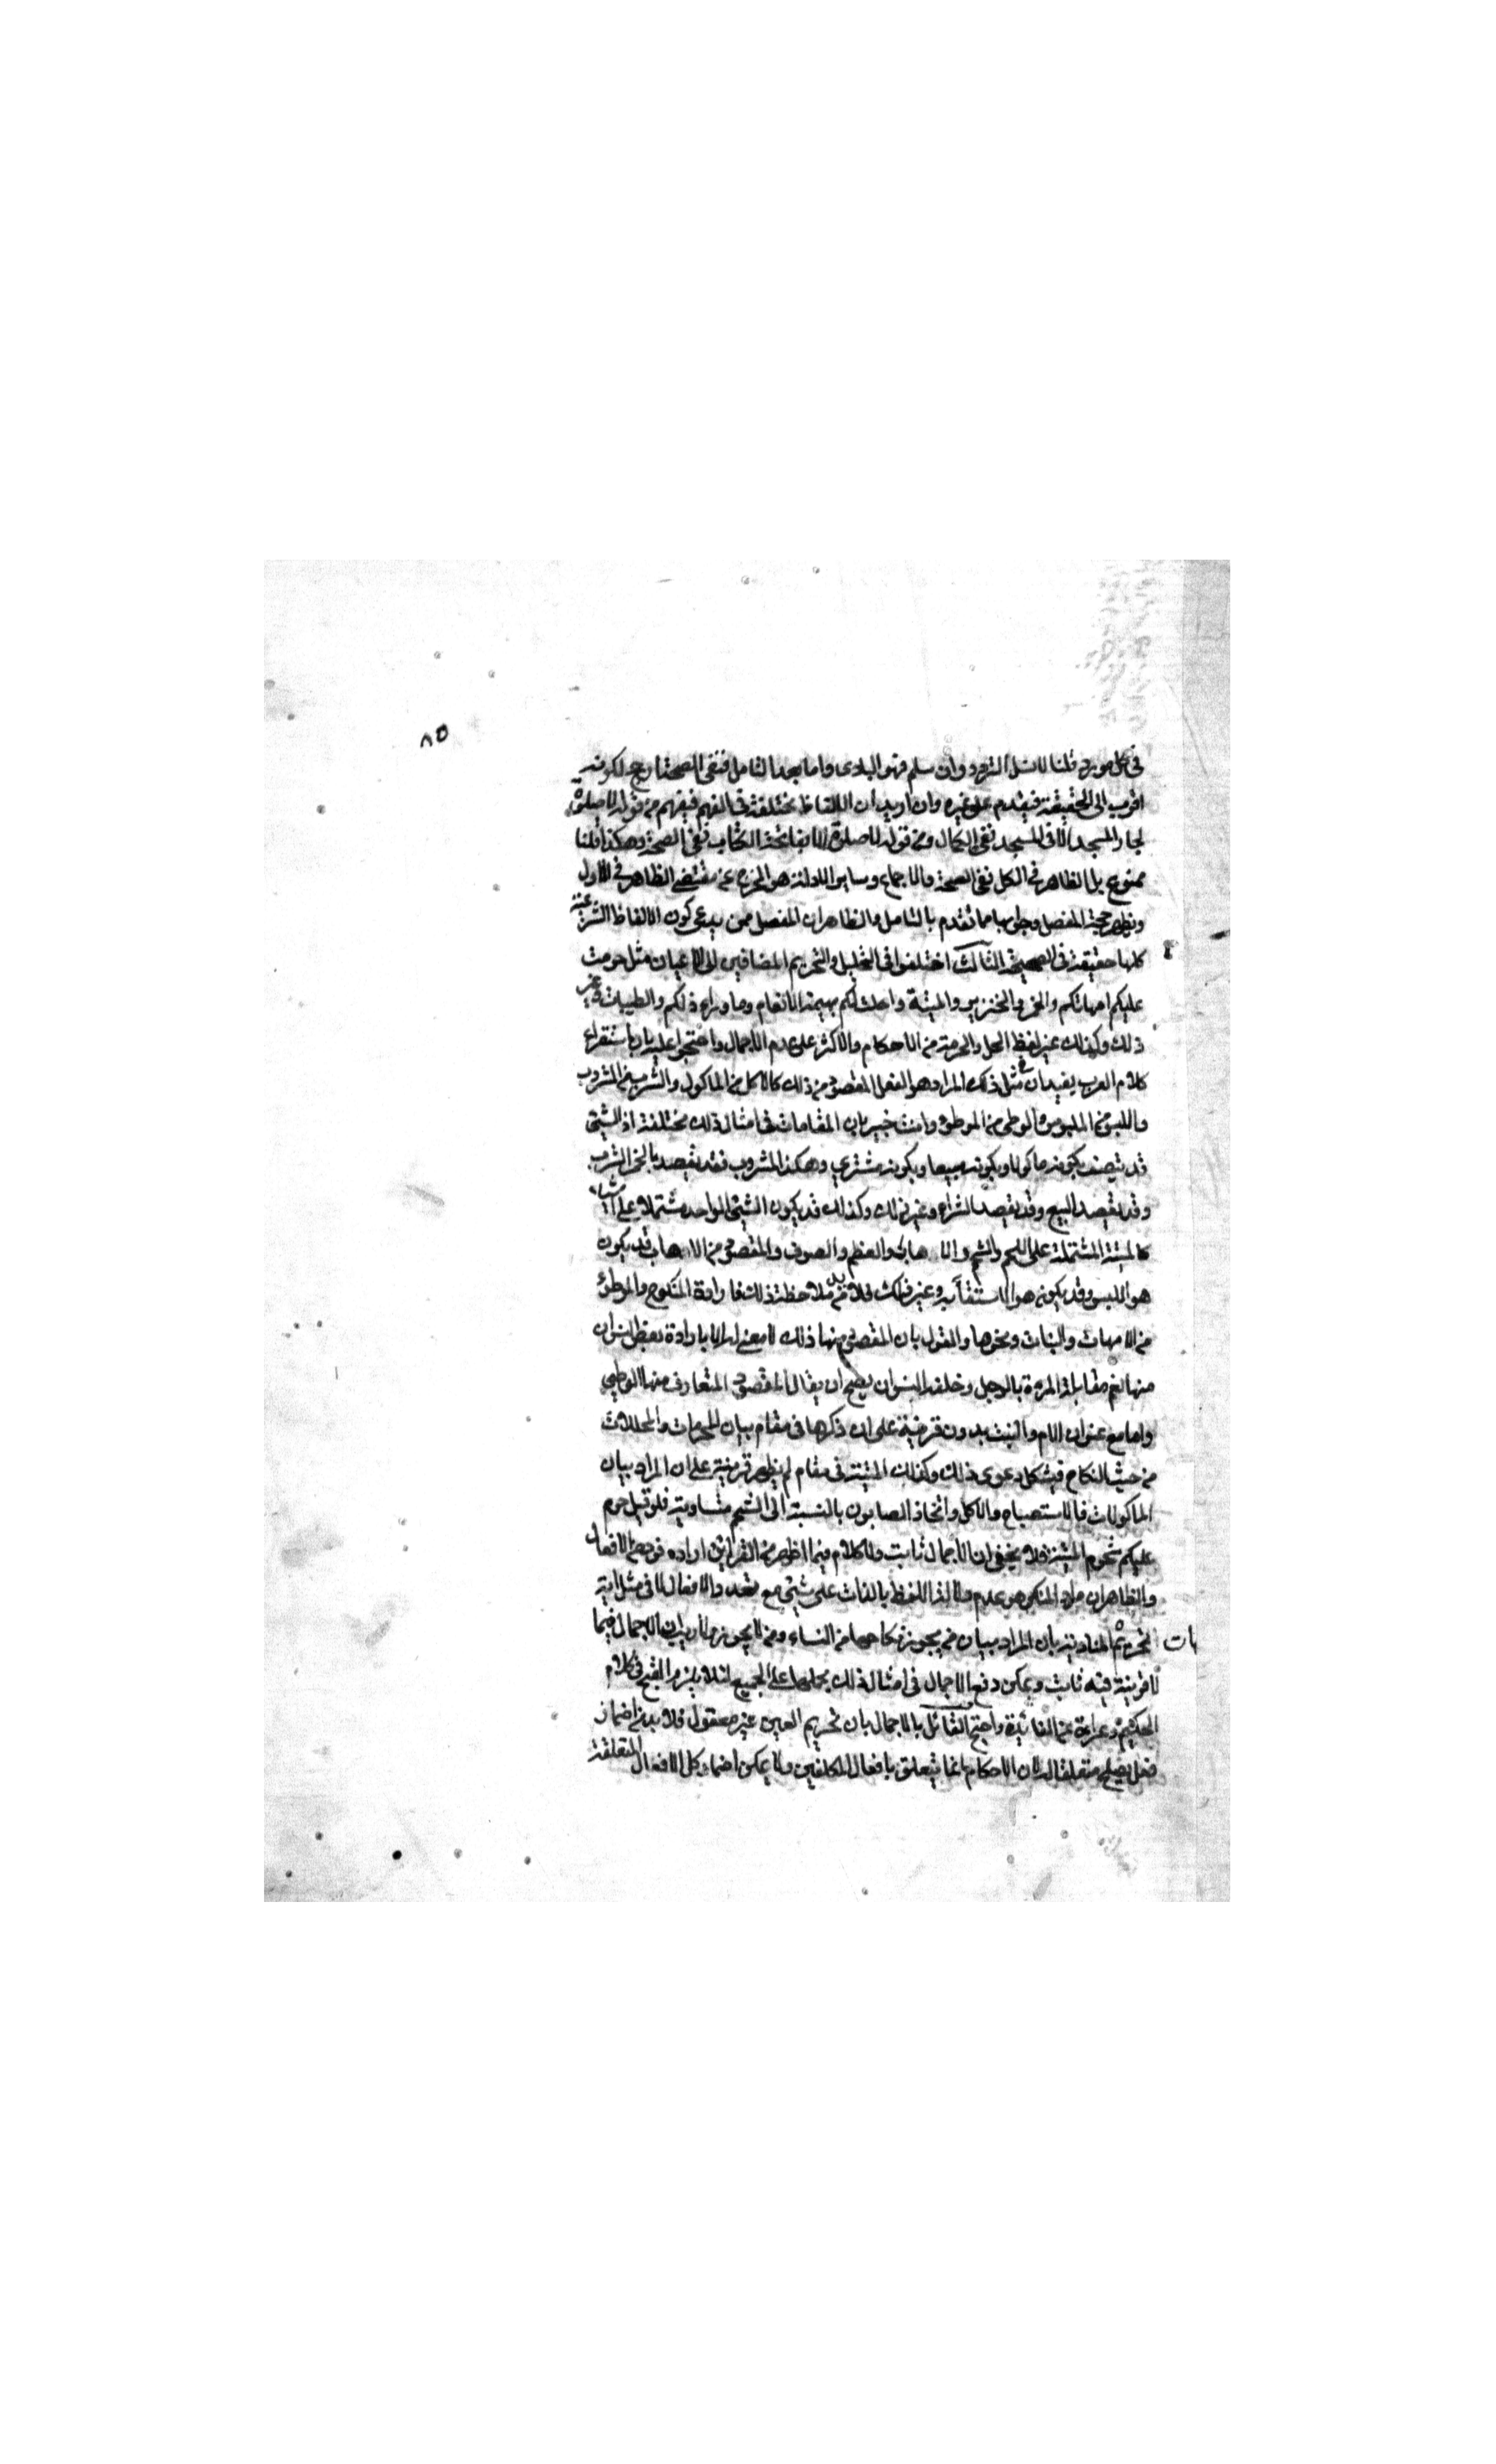 ٨٥
في كل مورد قلنا لا نسلم التردد وان سلم فهو البادى واما بعد التامل فنفى الصحة ارجح لكونه
اقرب الى الحقيقة فيقدم على غيره وان اريد ان الالفاظ مختلفة في الفهم فيفهم من قوله لا صلوة
لجار المسجد الا في المسجد نفى الكمال ومن قوله لا صلوة الا بفاتحة الكتاب نفى الصحة وهكذا قلنا
ممنوع بل الظاهر في الكل نفى الصحة والاجماع وساير الادلة هو المخرج عن مقتضى الظاهر في الاول
ويظهر حجة المفصل وجوابها مما تقدم بالتامل والظاهر ان المفصل ممن يدعى كون الالفاظ الشرعية
كلها حقيقة في الصحيحة الثالث اختلفوا في التحليل والتحريم المضافين الى الاعيان مثل حرمت
عليكم امهاتكم والخمر والخنزير والميتة واحلت لكم بهيمة الانعام وما وراء ذلكم والطيبات وغير
ذلك وكذلك غير لفظ الحل والحرمة من الاحكام والاكثر على عدم الاجمال واحتجوا عليه بان استقراء
كلام العرب يفيد ان في مثل ذلك المراد هو الفعل المقصود من ذلك كالاكل من الماكول والشرب من المشروب
واللبس من الملبوس والوطى من الموطوء وانت خبير بان المقامات في امثال ذلك مختلفة اذ الشئ
قد يتصف بكونه ماكولا وبكونه مبيعا وبكونه مشترى وهكذا المشروب فقد يقصد بالخمر الشرب
وقد يقصد البيع وقد يقصد الشراء وغير ذلك وكذلك قد يكون الشئ الواحد مشتملا على اشياء
كالميتة المشتملة على اللحم والشحم والاهاب والعظم والصوف والمقصود من الاهاب قد يكون
هو اللبس وقد يكون هو الاستقاء به وغير ذلك فلا بد من ملاحظة ذلك فارادة المنكوح والموطوء
من الامهات والبنات ونحوها والقول بان المقصود منها ذلك لا معنى له الا بارادة بعض النسوان
منها نعم مقابلة المرءة بالرجل وخلقه النسوان يصح ان يقال المقصود المتعارف منها الوطى
واما مع عنوان الام والبنت بدون قرينة على ان ذكرها في مقام بيان المحرمات والمحللات
من حيث النكاح فيشكل دعوى ذلك وكذلك الميتة في مقام لم يظهر قرينة على ان المراد بيان
الماكولات فالاستصباح والاكل واتخاذ الصابون بالنسبة الى الشحم متساوية فلو قيل حرم
عليكم شحوم الميتة فلا يخفى ان الاجمال ثابت ولا كلام فيما اظهر من القراين ارادة فرد من الافعال
والظاهر ان مراد المنكر هو عدم دلالة اللفظ بالذات على شئ مع تعدد الافعال لا في مثل اية
تحريم الامهات المنادية بان المراد بيان من يجوز نكاحها من النساء ومن لا يجوز والانصاف ان الاجمال فيما
لا قرينة فيه ثابت ويمكن دفع الاجمال في امثال ذلك بحملها على الجميع لئلا يلزم القبح في كلام
الحكيم وعراءه عن الفائدة واحتج القائل بالاجمال بان تحريم العين غير معقول فلا بد من اضمار
فعل يصلح متعلقا له لان الاحكام انما يتعلق بافعال المكلفين ولا يمكن اضمار كل الافعال المتعلقة